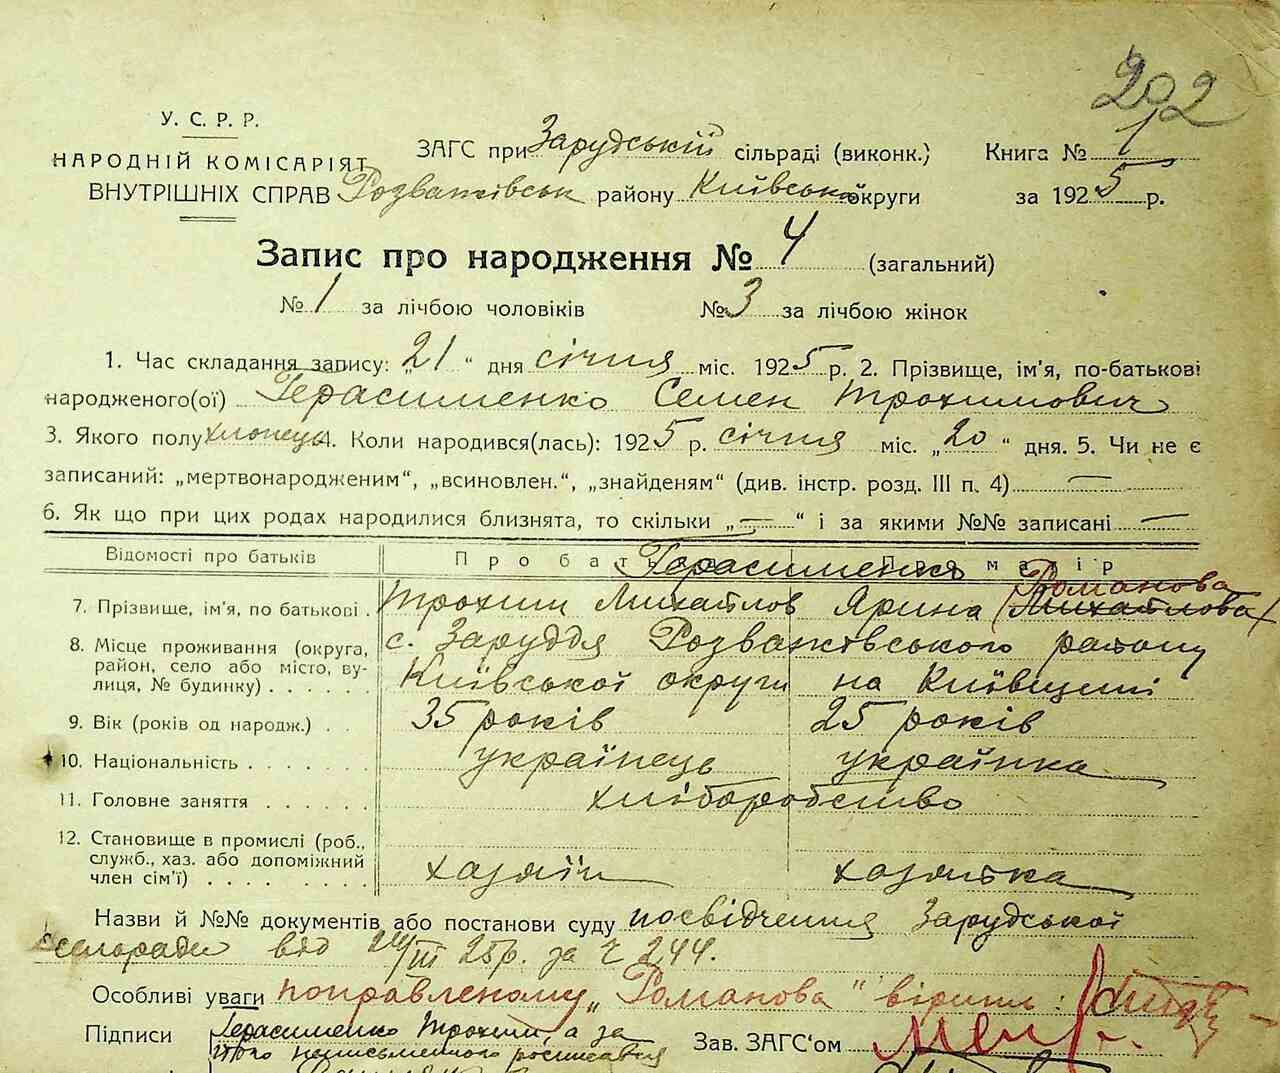 202
У. С. Р. Р.
НАРОДНІЙ КОМІСАРІЯТ
ВНУТРІШНІХ СПРАВ
ЗАГС при Зарудській сільраді (виконк.) Книга № 1
Розважівськ району Київськ округи за 1925 р.
Запис про народження № 4 (загальний)
№ 1 за лічбою чоловіків № 3 за лічбою жінок
1. Час складання запису: „21“ дня січня міс. 1925 р. 2. Прізвище, ім'я, по-батькові
народженого(ої) Герасименко Семен Трохимович
3. Якого полу хлопець 4. Коли народився(лась): 1925 р. січня міс. „20“ дня. 5. Чи не є
записаний: „мертвонародженим“, „всиновлен.“, „знайденям“ (див. інстр. розд. III п. 4) —
6. Як що при цих родах народилися близнята, то скільки „—“ і за якими №№ записані —
Відомості про батьків Про батька Про матір
Герасименко Романова
7. Прізвище, ім'я, по батькові . Трохим Михайлов Ярина (Михайлова)
8. Місце проживання (округа, с. Заруддя Розважівського району
район, село або місто, ву-
лиця, № будинку) . . . . . . Київської округи на Київщині
9. Вік (років од народж.) . . 35 років 25 років
10. Національність . . . . . . . українець українка
11. Головне заняття . . . . . . хліборобство
12. Становище в промислі (роб.,
служб., хаз. або допоміжний
член сім'ї) . . . . . . . . . хазяїн хазяйка
Назви й №№ документів або постанови суду посвідчення Зарудської
сельради від 24/III 25р. за Ч 244.
Особливі уваги поправленому „Романова“ вірити:
Підписи Герасименко Трохим, а за
його неписьменного росписався
Зав. ЗАГС'ом